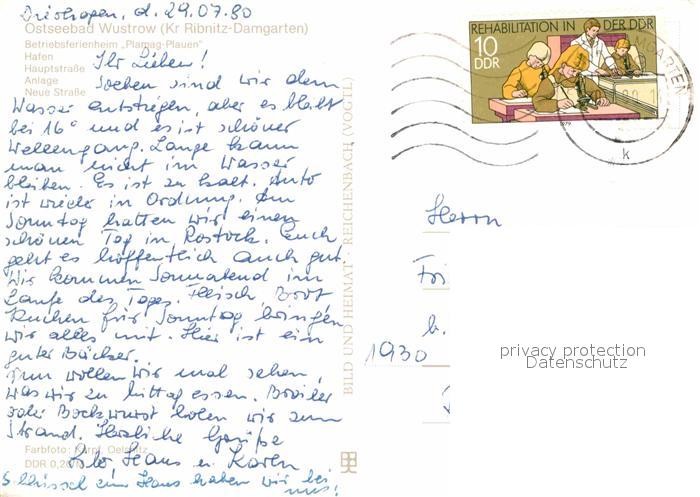 Dierhagen, d. 29.07.80
Ostseebad Wustrow (Kr Ribnitz-Damgarten)
Betriebsferienheim „Plamag-Plauen"
Hafen
Hauptstraße
Anlage
Neue Straße
Ihr Lieben!
Soeben sind wir dem
Wasser entstiegen, aber es bläst
bei 16° und es ist schöner
Wellengang. Lange kann
man nicht im Wasser
bleiben. Es ist zu kalt. Auto
ist wieder in Ordnung. Am
Sonntag hatten wir einen
schönen Tag in Rostock. Euch
geht es hoffentlich auch gut.
Wir kommen Sonnabend im
Laufe des Tages. Fleisch, Brot
Kuchen für Sonntag bringen
wir alles mit. Hier ist ein
guter Bäcker.
Nun wollen wir mal sehen,
was wir zu Mittag essen. Broiler
oder Bockwurst holen wir zum
Strand. Herzliche Grüße
Farbfoto:
DDR 0,20
Haus u. Karen
Schlüssel zum Haus haben wir bei
uns!
BILD UND HEIMAT REICHENBACH (VOGTL)
REHABILITATION IN DER DDR
10
DDR
1979
MGARTEN
k
Herrn
b.
1930
privacy protection
Datenschutz